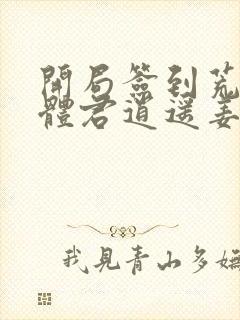 開局簽到荒
體君逍遥姜
我見青山多嫵